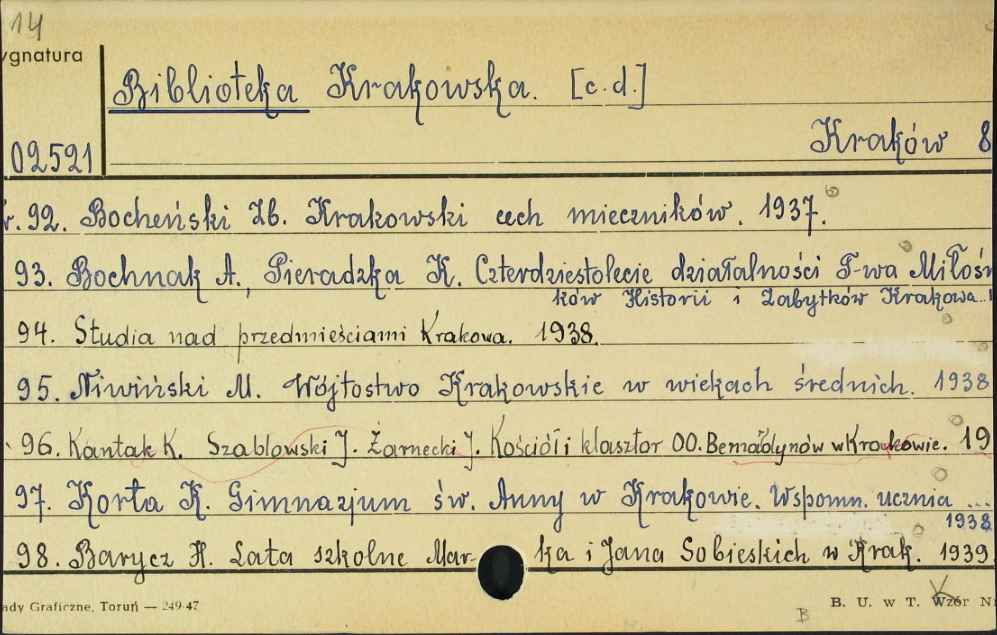 14
ygnatura
Biblioteka Krakowska. [c.d.]
Kraków 8
02521
r. 92. Bocheński Zb. Krakowski cech mieczników. 1937.
93. Bochnak A., Pieradzka K. Czterdziestolecie działalności T-wa Miłośn
ków Historii i Zabytków Krakowa...
94. Studia nad przedmieściami Krakowa. 1938.
95. Niwiński M. Wójtostwo Krakowskie w wiekach średnich. 1938
96. Kantak K. Szablowski J. Żarnecki J. Kościół i klasztor OO. Bernardynów w Krakowie. 19
97. Korta K. Gimnazjum św. Anny w Krakowie. Wspomn. ucznia ...
1938
98. Barycz H. Lata szkolne Mar- ka i Jana Sobieskich w Krak. 1939
ady Graficzne, Toruń — 249-47
B. U. w T. Wzór N
B